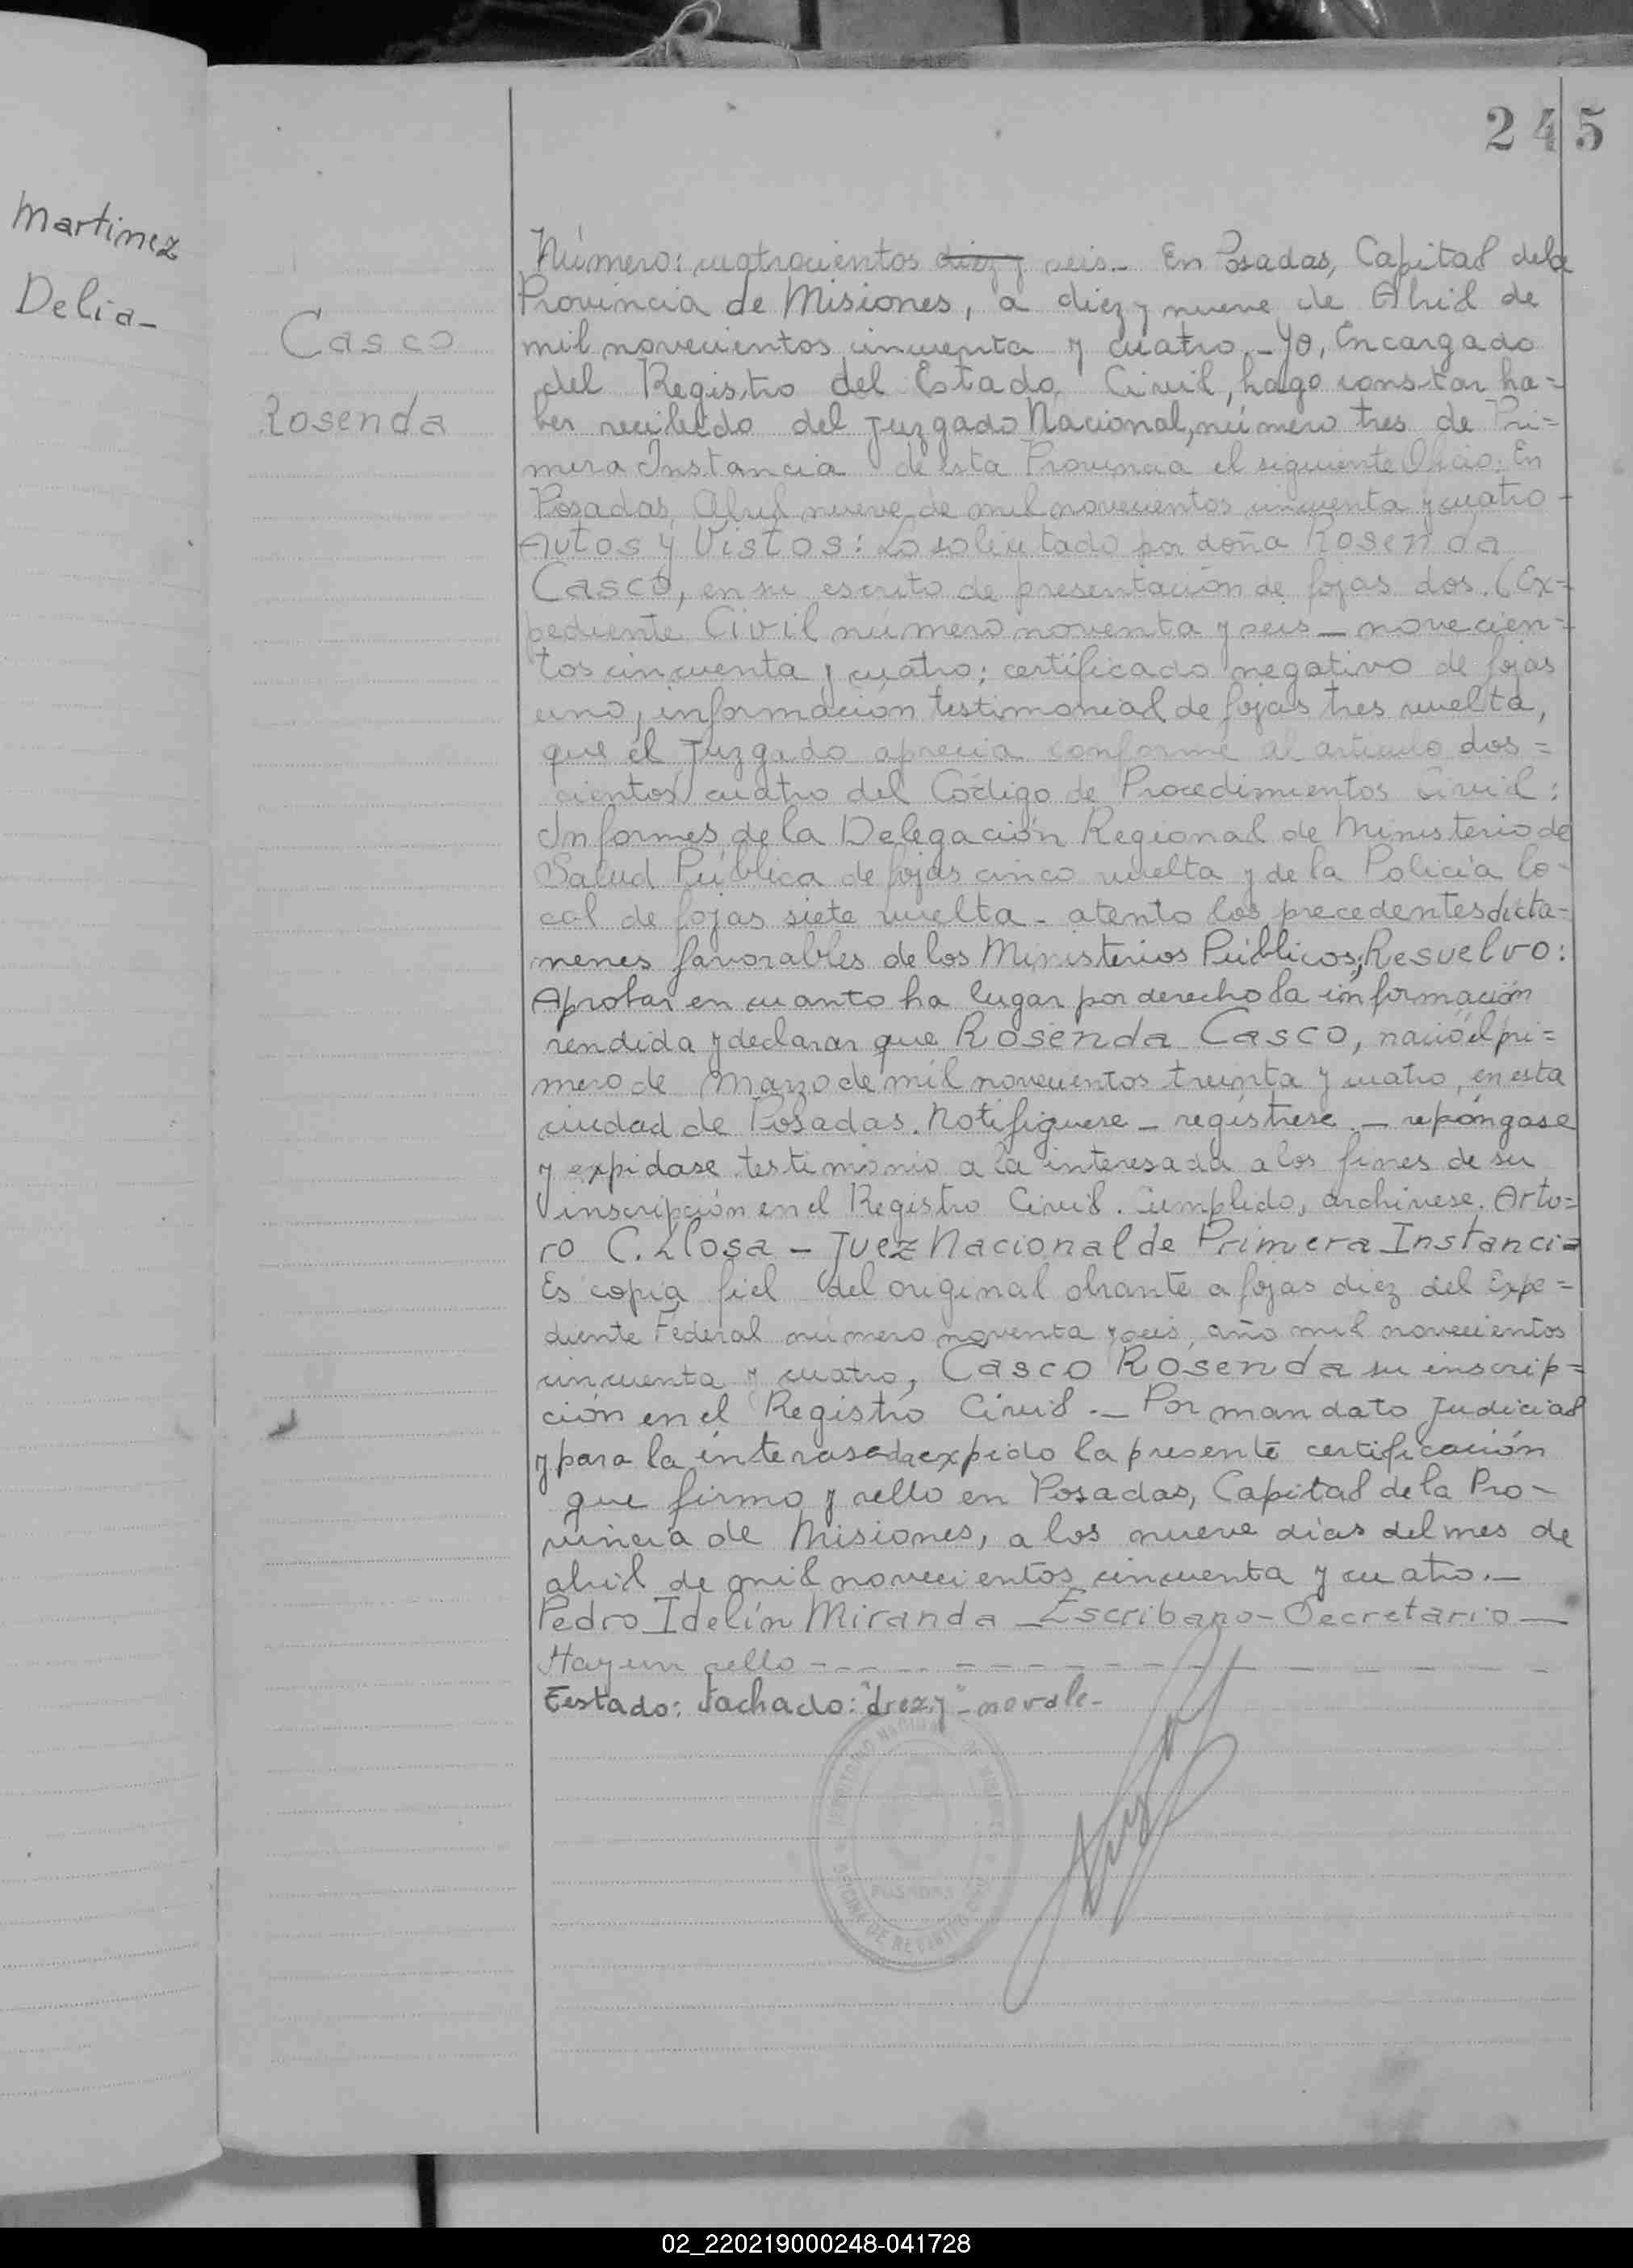 245
Martinez
Delia-
Casco
Rosenda
Número: cuatrocientos diez y seis.- En Posadas, Capital de la
Provincia de Misiones, a diez y nueve de Abril de
mil novecientos cincuenta y cuatro.- Yo, Encargado
del Registro del Estado Civil, hago constar ha=
ber recibido del Juzgado Nacional, número tres de Pri=
mera Instancia de esta Provincia el siguiente Oficio: En
Posadas, Abril nueve de mil novecientos cincuenta y cuatro-
Autos y Vistos: Lo solicitado por doña Rosenda
Casco, en su escrito de presentación de fojas dos. (Ex=
pediente Civil número noventa y seis _ novecien=
tos cincuenta y cuatro; certificado negativo de fojas
uno, información testimonial de fojas tres vuelta,
que el Juzgado aprecia conforme al articulo dos=
cientos cuatro del Código de Procedimientos Civil:
Informes de la Delegación Regional de Ministerio de
Salud Pública de fojas cinco vuelta y de la Policía lo-
cal de fojas siete vuelta - atento los precedentes dicta=
menes favorables de los Ministerios Públicos; Resuelvo:
Aprobar en cuanto ha lugar por derecho la información
rendida y declarar que Rosenda Casco, nació el pri=
mero de Marzo de mil novecientos treinta y cuatro, en esta
ciudad de Posadas. Notifiquese - regístrese. - repóngase
y expidase testimonio a la interesada a los fines de su
inscripción en el Registro Civil. Cumplido, archivese. Artu=
ro C. Llosa - Juez Nacional de Primera Instancia
Es copia fiel del original obrante a fojas diez del Expe=
diente Federal número noventa y seis año mil novecientos
cincuenta y cuatro, Casco Rosenda su inscrip=
ción en el Registro Civil.- Por mandato Judicial
y para la interasada expido la presente certificación
que firmo y sello en Posadas, Capital de la Pro-
vincia de Misiones, a los nueve días del mes de
abril de mil novecientos cincuenta y cuatro.-
Pedro Idelín Miranda - Escribano-Secretario -
Hay un sello - - - - - - - - - - - - - - -
Testado: tachado: "diez y" - no vale-
TERRITORIO NACIONAL DE MISIONES
POSADAS
OFICINA DE REGISTRO CIVIL
02_220219000248-041728